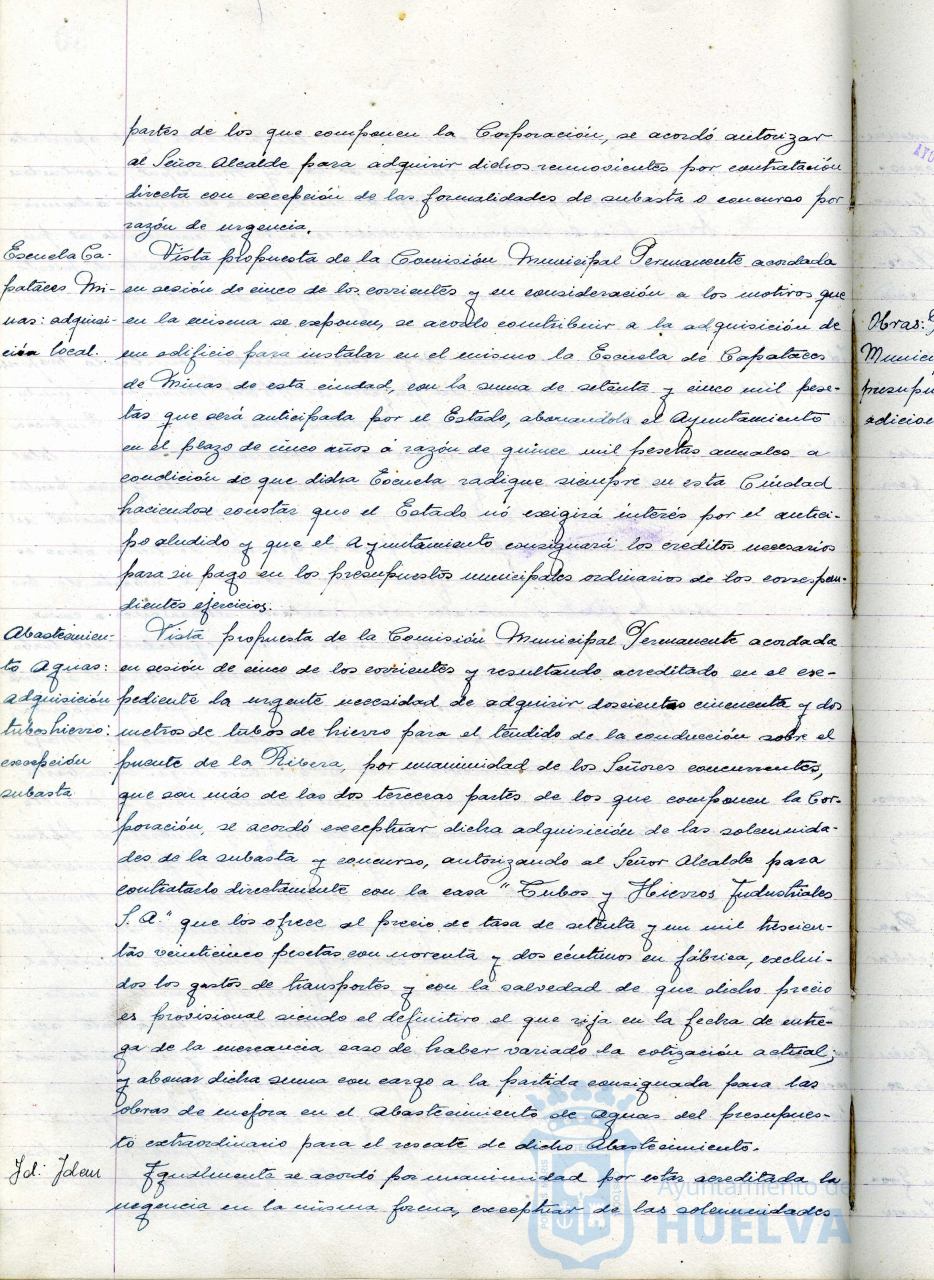 partes de los que componen la Corporación, se acordó autorizar
al Señor Alcalde para adquirir dichos removientes por contratación
directa con excepción de las formalidades de subasta o concurso por
razón de urgencia.
Escuela Ca-
pataces Mi-
nas: adquisi-
ción local.
Vista propuesta de la Comisión Municipal Permanente acordada
en sesión de cinco de los corrientes y en consideración a los motivos que
en la misma se exponen, se acordo contribuir a la adquisición de
un edificio para instalar en el mismo la Escuela de Capataces
de Minas de esta ciudad, con la suma de setenta y cinco mil pese-
tas que será anticipada por el Estado, abonandola el Ayuntamiento
en el plazo de cinco años á razón de quince mil pesetas anuales a
condición de que dicha Escuela radique siempre en esta Ciudad
haciendose constar que el Estado nó exigirá interés por el antici-
po aludido y que el Ayuntamiento consignará los créditos necesarios
para su pago en los presupuestos municipales ordinarios de los correspon-
dientes ejercicios.
Abastecimien-
to Aguas:
adquisición
tubos hierro:
excepción
subasta
Vista propuesta de la Comisión Municipal Permanente acordada
en sesión de cinco de los corrientes y resultando acreditado en el ex-
pediente la urgente necesidad de adquirir doscientos cincuenta y dos
metros de tubos de hierro para el tendido de la conducción sobre el
puente de la Ribera, por unanimidad de los Señores concurrentes,
que son más de las dos terceras partes de los que componen la Cor-
poración, se acordó exceptuar dicha adquisición de las solemnida-
des de la subasta y concurso, autorizando al Señor Alcalde para
contratarlo directamente con la casa "Tubos y Hierros Industriales
S.A." que los ofrece al precio de tasa de setenta y un mil trescien-
tas veinticinco pesetas con noventa y dos céntimos en fábrica, exclui-
dos los gastos de transportes y con la salvedad de que dicho precio
es provisional siendo el definitivo el que rija en la fecha de entre-
ga de la mercancia caso de haber variado la cotización actual;
y abonar dicha suma con cargo a la partida consignada para las
obras de mejora en el Abastecimiento de Aguas del presupues-
to extraordinario para el rescate de dicho Abastecimiento.
Id: Idem
Igualmente se acordó por unanimidad por estar acreditada la
urgencia en la misma forma, exceptuar de las solemnidades
Obras:
Munici
presupu
adicion
Ayuntamiento de
HUELVA